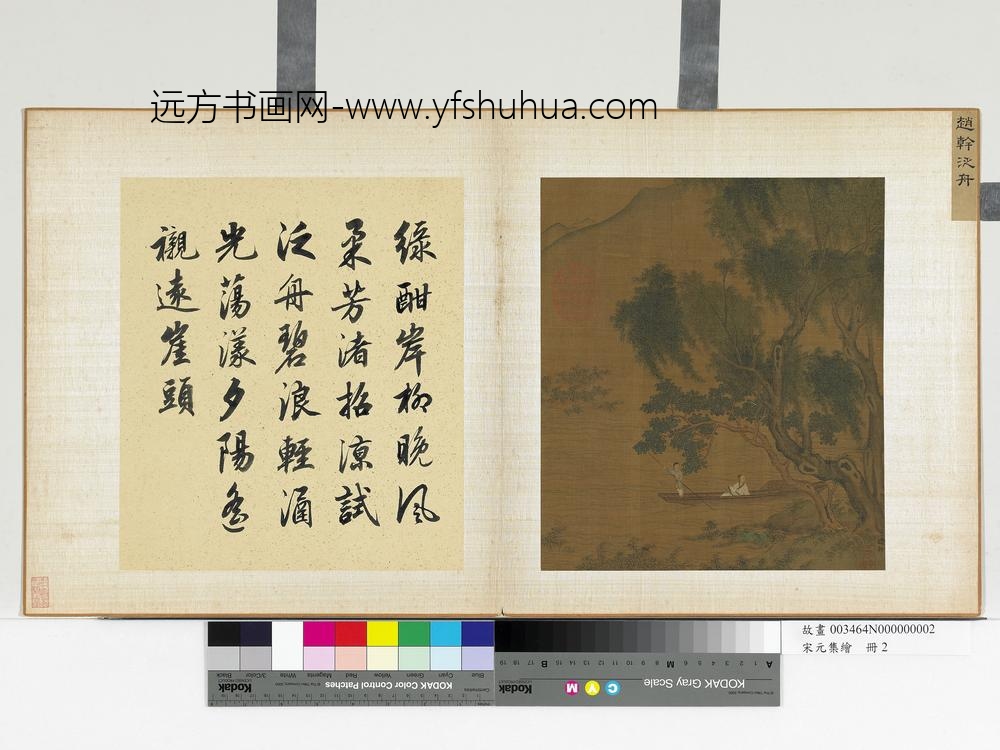 远方书画网-www.yfshuhua.com
趙幹泛舟
綠酣岸柳晚風
柔芳渚招涼試
泛舟碧浪輕涵
光蕩漾夕陽遙
襯遠崖頭
故畫 003464N000000002
宋元集繪 冊 2
Blue Cyan Green Yellow Red Magenta White 3/Color Black
Kodak
KODAK Color Control Patches
Kodak
KODAK Gray Scale
C Y M
A 1 2 3 4 5 6 M 8 9 10 11 12 13 14 15 B 17 18 19